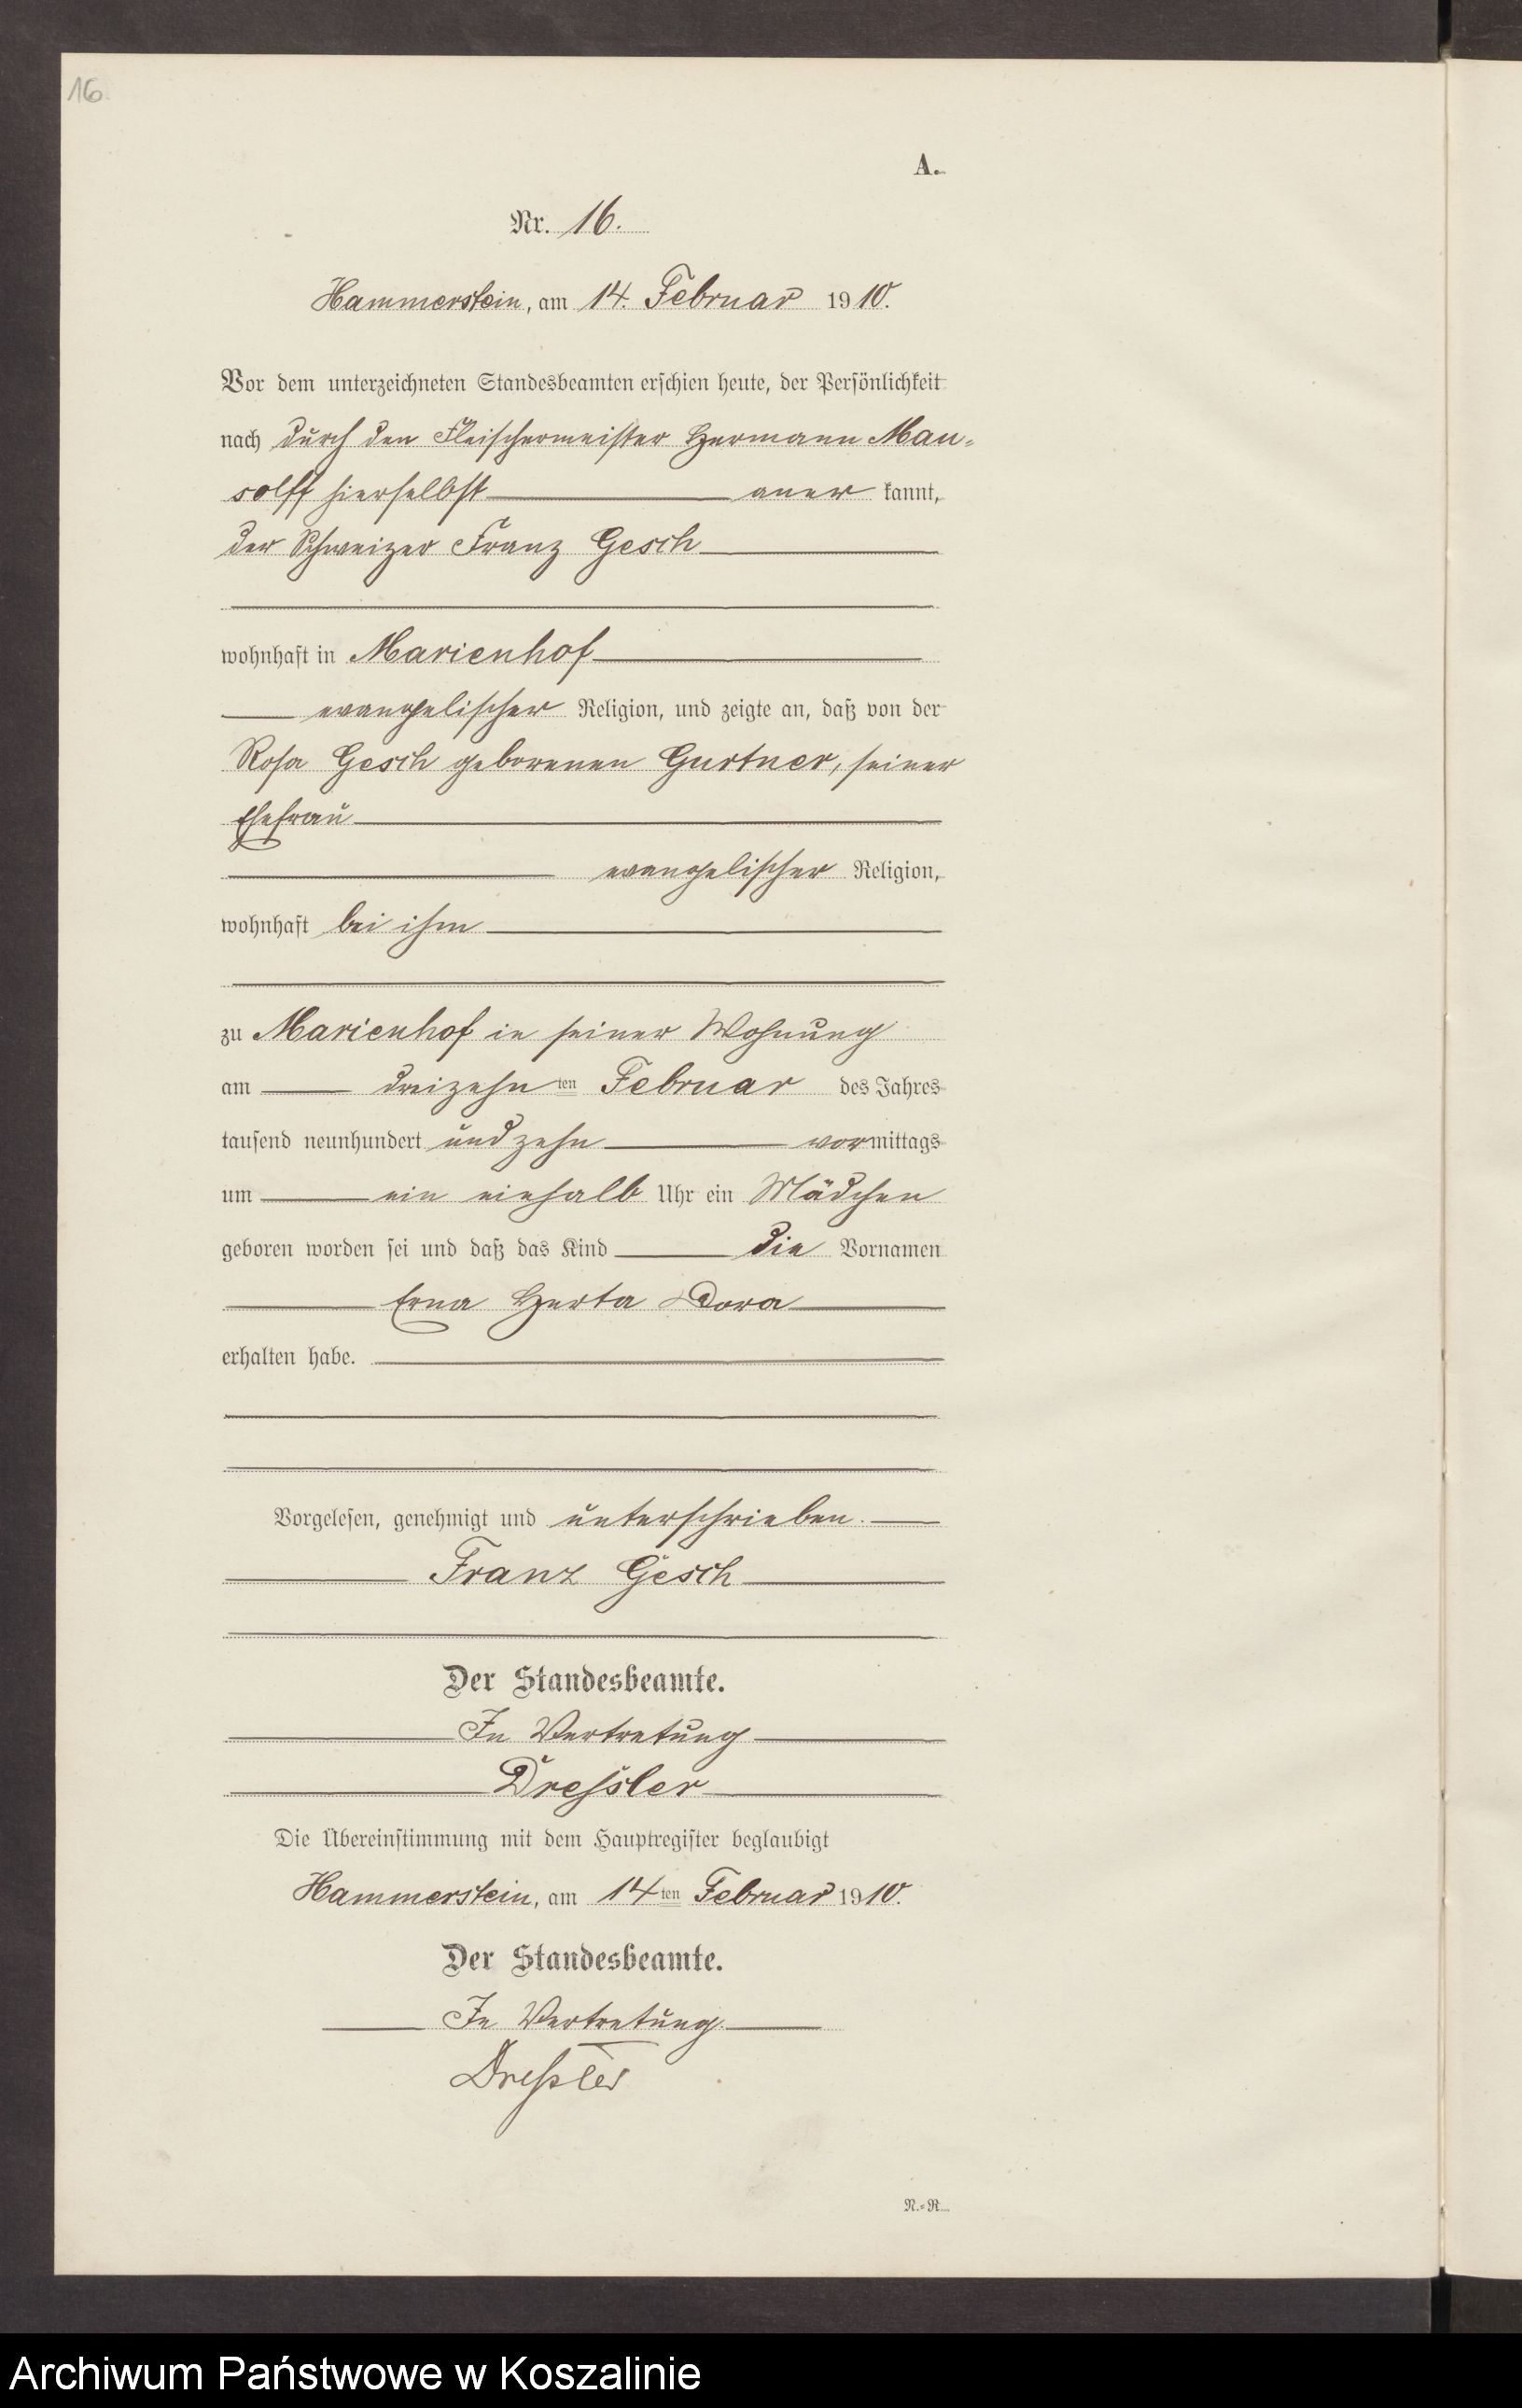 16.
A.
Nr. 16.
Hammerstein, am 14. Februar 1910.
Vor dem unterzeichneten Standesbeamten erschien heute, der Persönlichkeit
nach durch den Fleischermeister Hermann Mau-
solff hierselbst aner kannt,
der Schweizer Franz Gesch
wohnhaft in Marienhof
evangelischer Religion, und zeigte an, daß von der
Rosa Gesch geborenen Gurtner, seiner
Ehefrau
evangelischer Religion,
wohnhaft bei ihm
zu Marienhof in seiner Wohnung
am dreizehn ten Februar des Jahres
tausend neunhundert und zehn vormittags
um ein einhalb Uhr ein Mädchen
geboren worden sei und daß das Kind die Vornamen
Erna Herta Dora
erhalten habe.
Vorgelesen, genehmigt und unterschrieben.
Franz Gesch
Der Standesbeamte.
In Vertretung
Dressler
Die Übereinstimmung mit dem Hauptregister beglaubigt
Hammerstein, am 14ten Februar 1910.
Der Standesbeamte.
In Vertretung.
Dressler
N.=R.
Archiwum Państwowe w Koszalinie